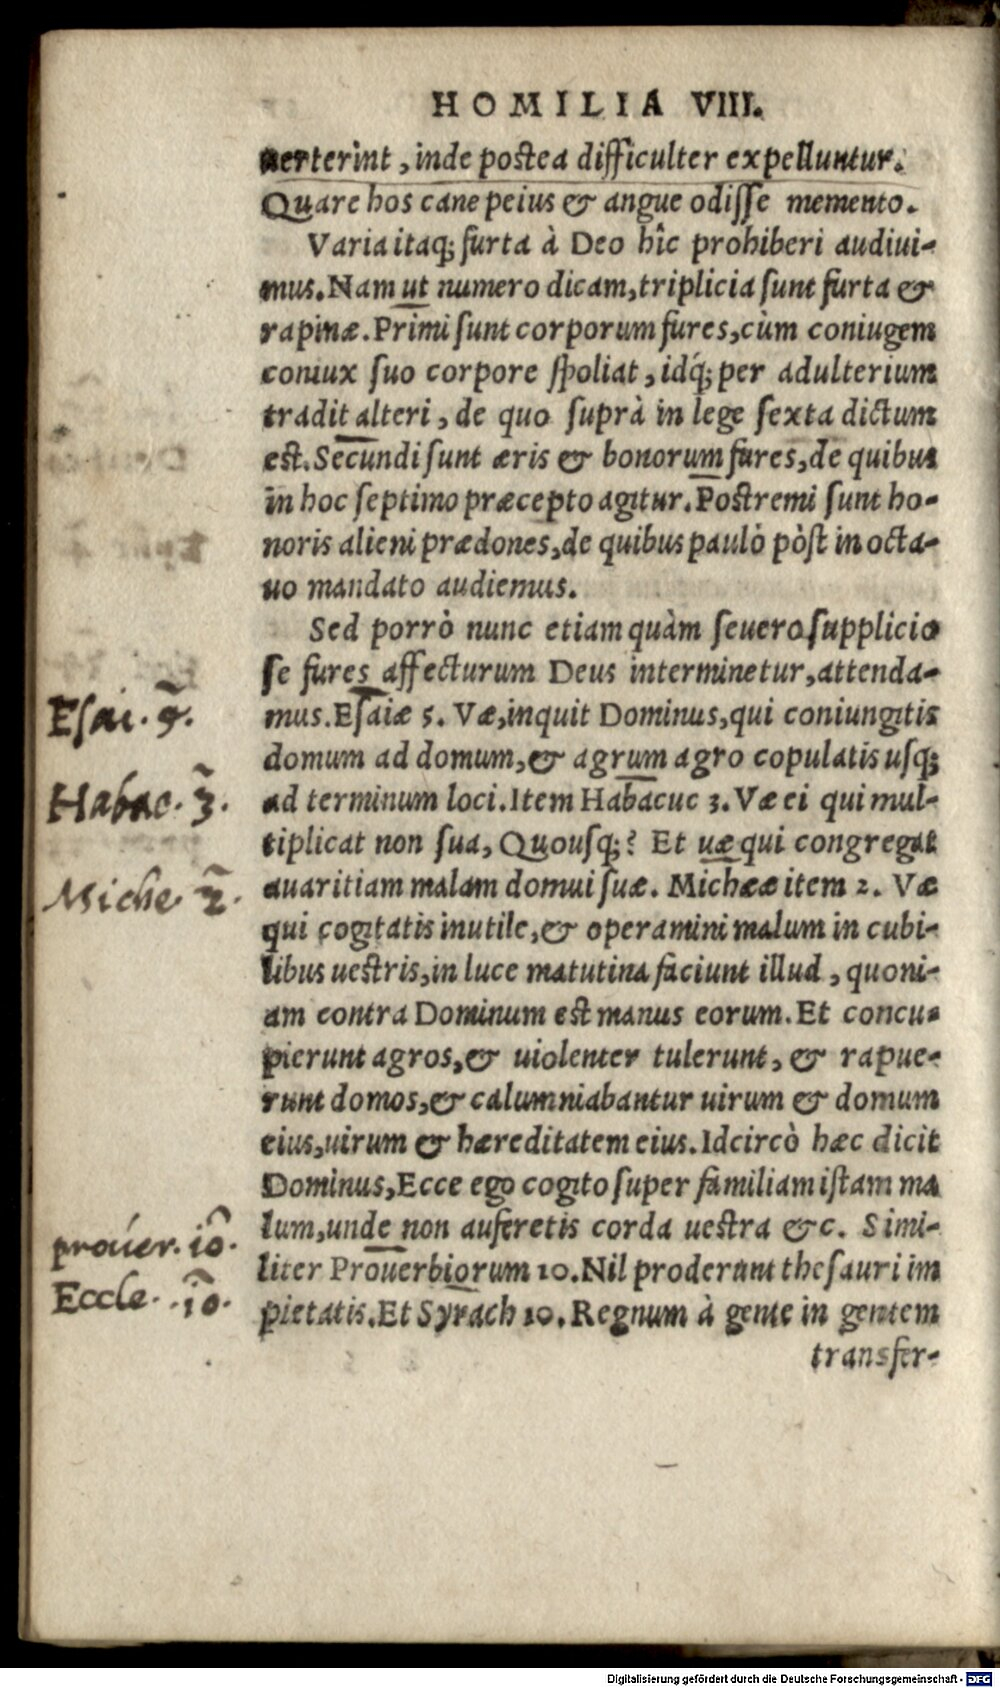 HOMILIA VIII.
uerterint, inde postea difficulter expelluntur.
Quare hos cane peius & angue odisse memento.
Varia itaq; furta à Deo hîc prohiberi audiui-
mus. Nam ut numero dicam, triplicia sunt furta &
rapinæ. Primi sunt corporum fures, cùm coniugem
coniux suo corpore spoliat, idq́; per adulterium
tradit alteri, de quo suprà in lege sexta dictum
est. Secundi sunt æris & bonorum fures, de quibus
in hoc septimo præcepto agitur. Postremi sunt ho-
noris alieni prædones, de quibus paulò pòst in octa-
uo mandato audiemus.
Sed porrò nunc etiam quàm seuero supplicio
se fures affecturum Deus interminetur, attenda-
Esai. 5.
mus. Esaiæ 5. Væ, inquit Dominus, qui coniungitis
domum ad domum, & agrum agro copulatis usq;
Habac. 3.
ad terminum loci. Item Habacuc 3. Væ ei qui mul-
tiplicat non sua, Quousq;? Et uæ qui congregat
Miche. 2.
auaritiam malam domui suæ. Michææ item 2. Væ
qui cogitatis inutile, & operamini malum in cubi-
libus uestris, in luce matutina faciunt illud, quoni-
am contra Dominum est manus eorum. Et concu-
pierunt agros, & uiolenter tulerunt, & rapue-
runt domos, & calumniabantur uirum & domum
eius, uirum & hæreditatem eius. Idcircò hæc dicit
Dominus, Ecce ego cogito super familiam istam ma
lum, unde non auferetis corda uestra &c. Simi-
prouer. 10.
liter Prouerbiorum 10. Nil proderunt thesauri im
Eccle. 10.
pietatis. Et Syrach 10. Regnum à gente in gentem
transfer-
Digitalisierung gefördert durch die Deutsche Forschungsgemeinschaft - DFG